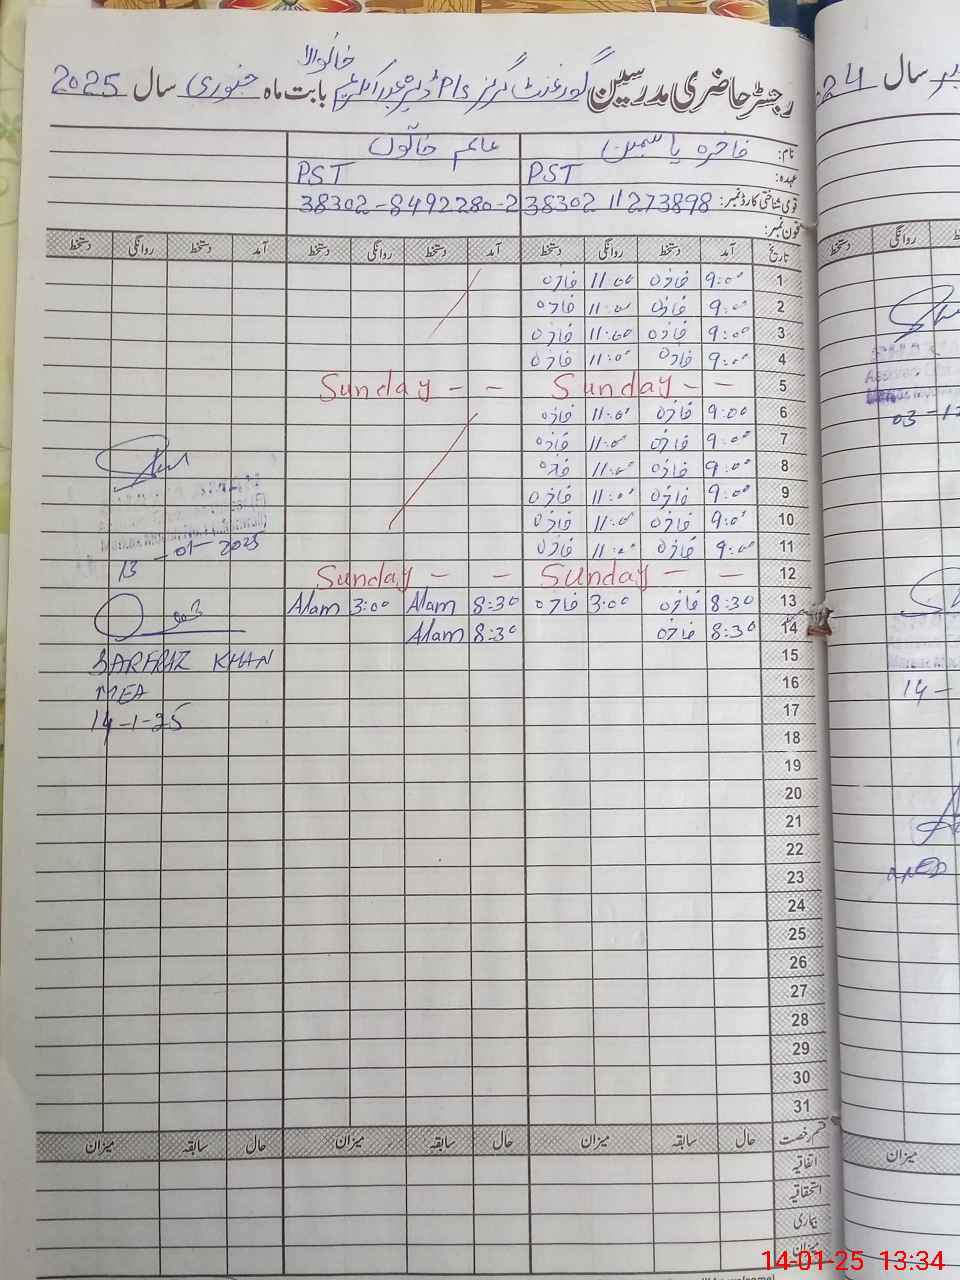 خانوالا
رجسٹر حاضری مدرسین گورنمنٹ گرلز P/S بابت ماہ جنوری سال 2025
نام: فاخرہ یاسمین عالم خاتون
عہدہ: PST PST
قومی شناختی کارڈ نمبر: 38302 11273898 38302-8492280-2
فون نمبر:
تاریخ آمد دستخط روانگی دستخط آمد دستخط روانگی دستخط آمد دستخط روانگی دستخط
1 9:00 فاخرہ 11:00 فاخرہ
2 9:00 فاخرہ 11:00 فاخرہ
3 9:00 فاخرہ 11:00 فاخرہ
4 9:00 فاخرہ 11:00 فاخرہ
5 Sunday - - Sunday - -
6 9:00 فاخرہ 11:00 فاخرہ
7 9:00 فاخرہ 11:00 فاخرہ
8 9:00 فاخرہ 11:00 فاخرہ
9 9:00 فاخرہ 11:00 فاخرہ
10 9:00 فاخرہ 11:00 فاخرہ
11 9:00 فاخرہ 11:00 فاخرہ
13-01-2025
12 Sunday - - Sunday - -
13 8:30 فاخرہ 3:00 فاخرہ 8:30 Alam 3:00 Alam
14 8:30 فاخرہ 8:30 Alam
15
SARFRAZ KHAN
16
MEA
17
14-1-25
18
19
20
21
22
23
24
25
26
27
28
29
30
31
قسم رخصت حال سابقہ میزان حال سابقہ میزان حال سابقہ میزان
اتفاقیہ
استحقاقیہ
بیماری
میزان
سال 24
روانگی دستخط
03-12
14-
میزان
14-01-25 13:34